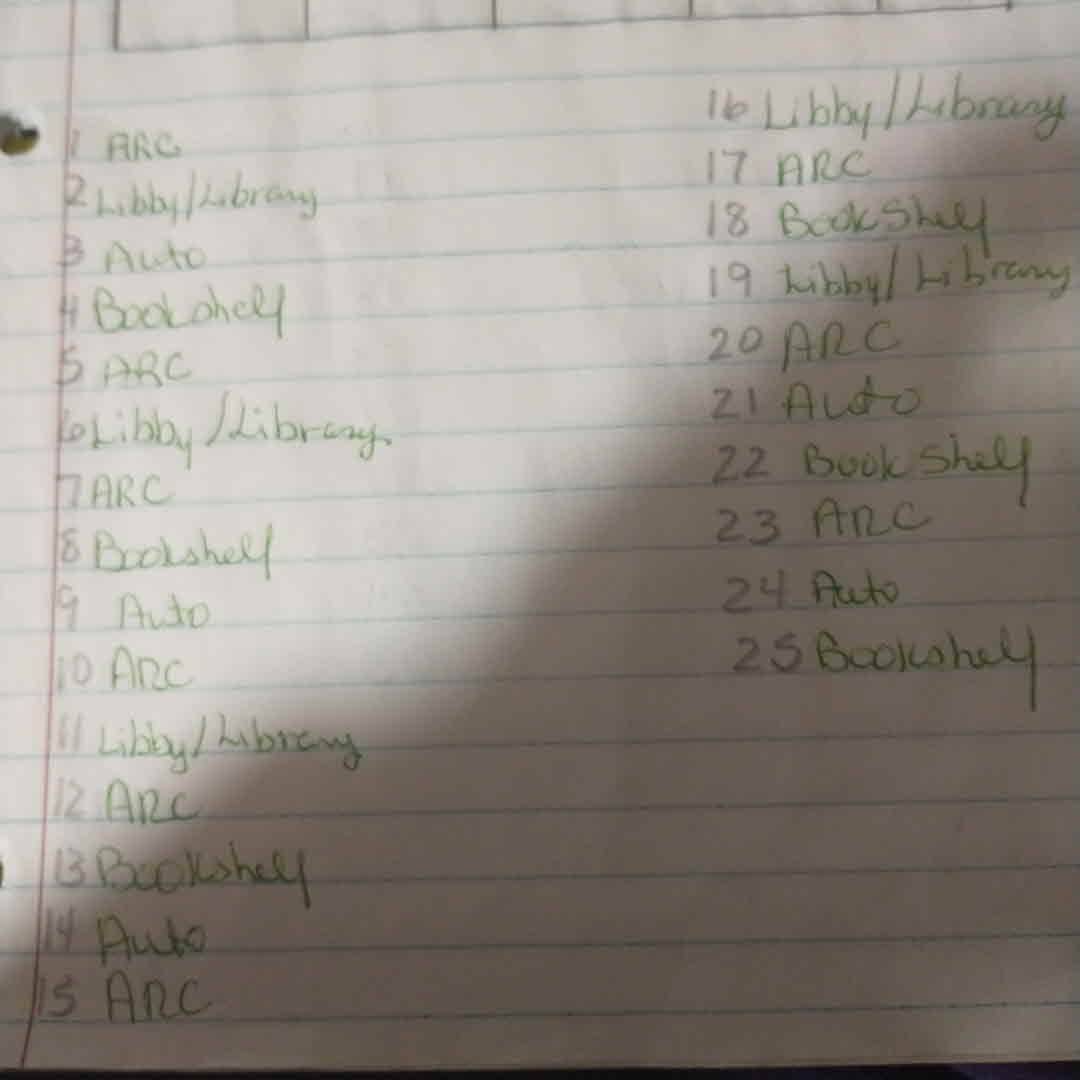 1 ARC
2 Libby/Library
3 Auto
4 Bookshelf
5 ARC
6 Libby/Library
7 ARC
8 Bookshelf
9 Auto
10 ARC
11 Libby/Library
12 ARC
13 Bookshelf
14 Auto
15 ARC
16 Libby/Library
17 ARC
18 BookShelf
19 Libby/Library
20 ARC
21 Auto
22 Book Shelf
23 ARC
24 Auto
25 Bookshelf